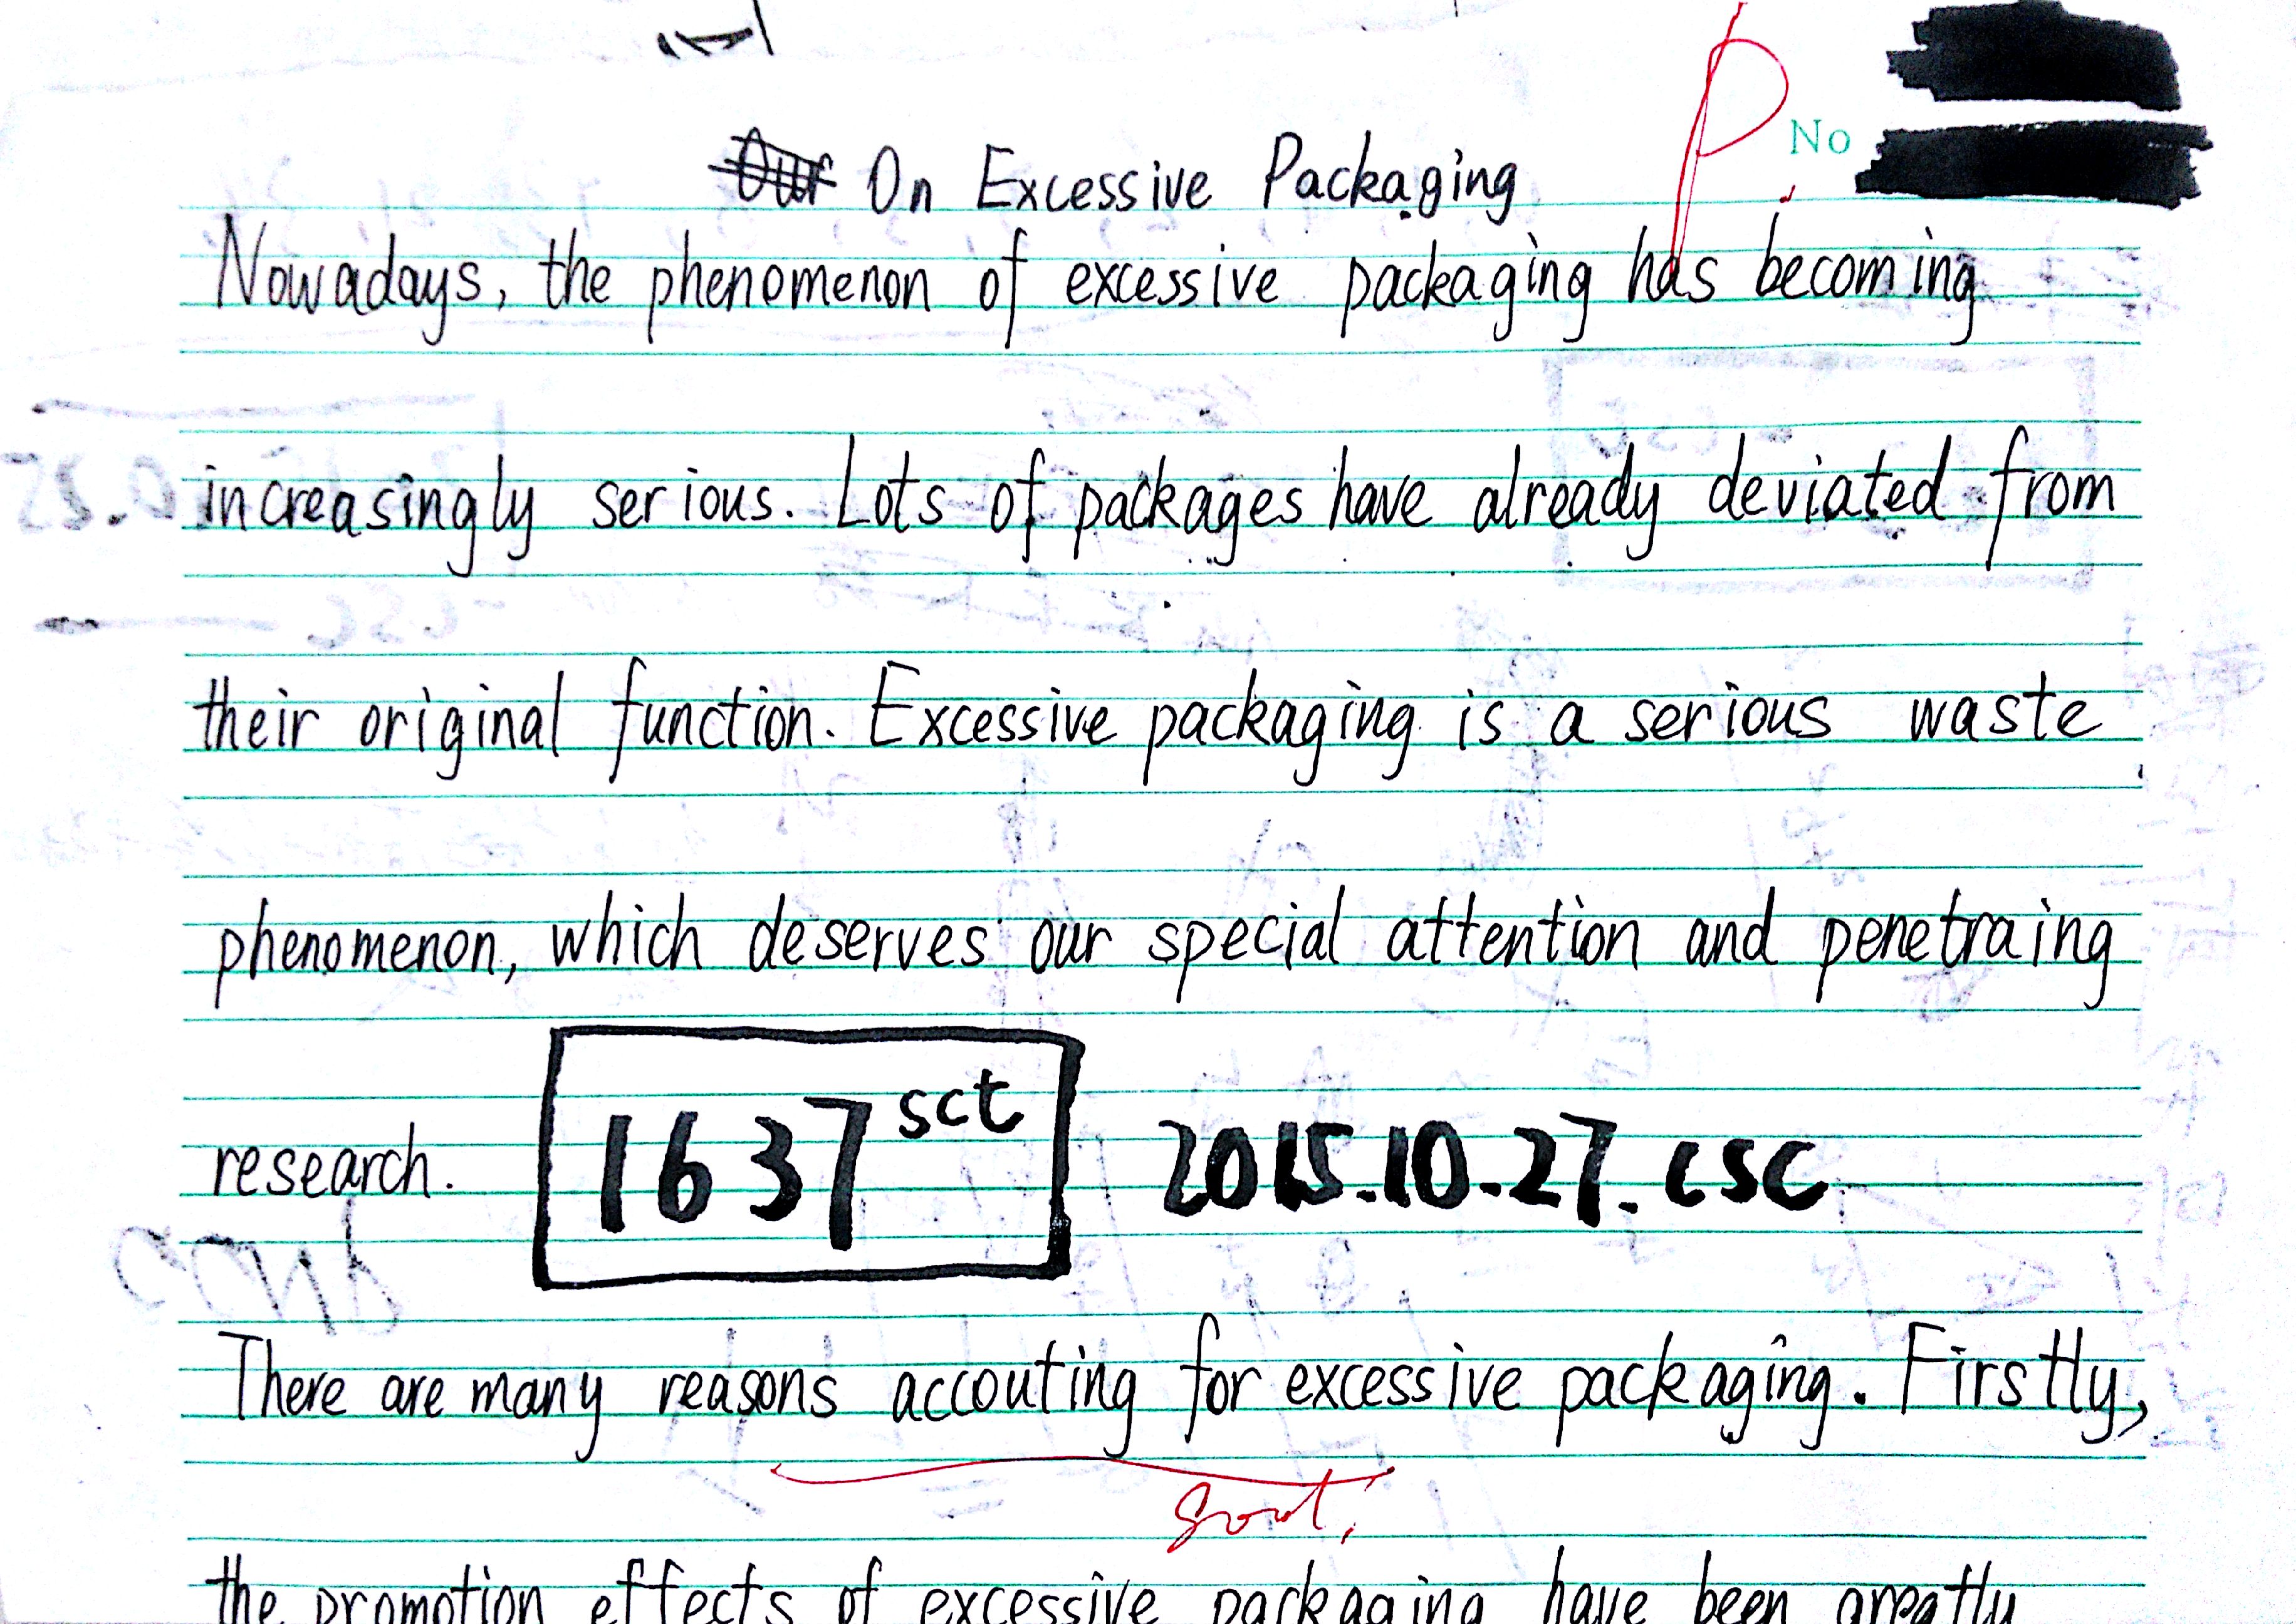 On Excessive Packaging
No
Nowadays, the phenomenon of excessive packaging has becoming
increasingly serious. Lots of packages have already deviated from
their original function. Excessive packaging is a serious waste
phenomenon, which deserves our special attention and penetraing
research.
1637 sct
2015.10.27.CSC
There are many reasons accouting for excessive packaging. Firstly,
good.
the promotion effects of excessive packaging have been greatly